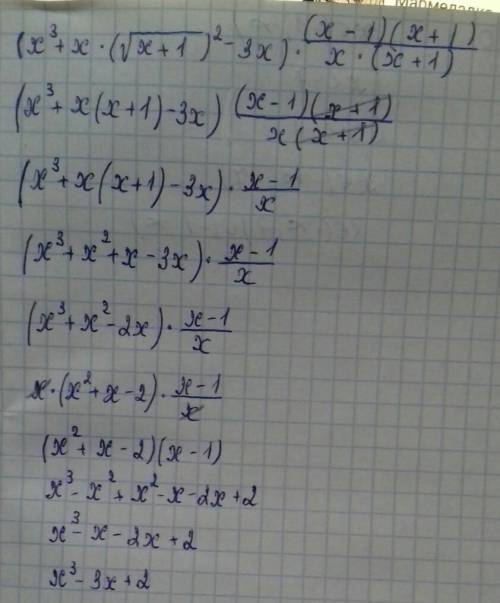 Мармеладка
(x³+x·(√x+1)²-3x)·(x-1)(x+1)/x·(x+1)
(x³+x(x+1)-3x) (x-1)(x+1)/x(x+1)
(x³+x(x+1)-3x)·x-1/x
(x³+x²+x-3x)·x-1/x
(x³+x²-2x)·x-1/x
x·(x²+x-2)·x-1/x
(x²+x-2)(x-1)
x³-x²+x²-x-2x+2
x³-x-2x+2
x³-3x+2